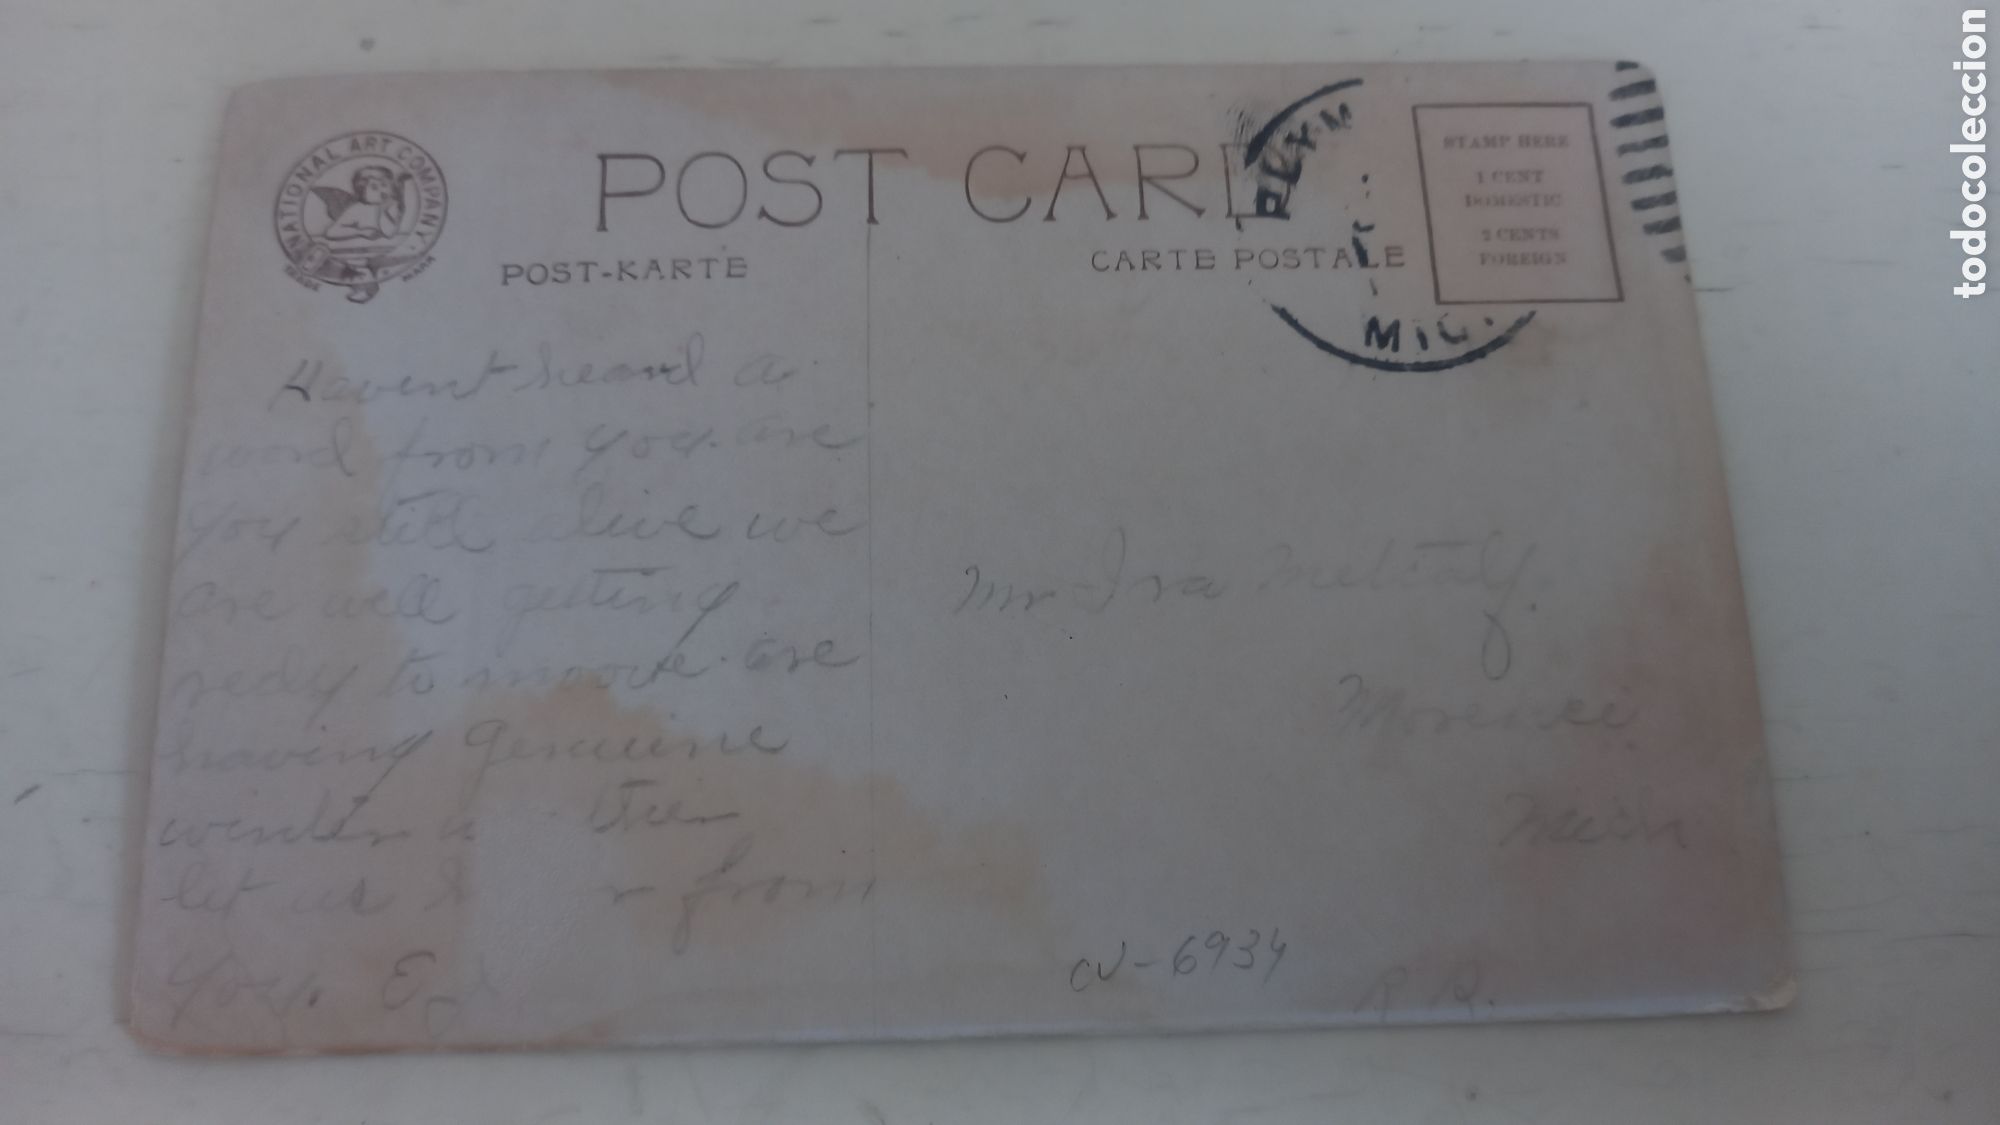 NATIONAL ART COMPANY.
TRADE MARK
POST CARD
POST-KARTE
CARTE POSTALE
STAMP HERE
1 CENT
DOMESTIC
2 CENTS
FOREIGN
PLYM
MIC.
Havent heard a
word from you. are
you still alive we
are well getting
redy to moove. are
having genuine
winter
let us from
you.
Mr Ira
Morenci
Mich
R R.
CV-6934
todocoleccion